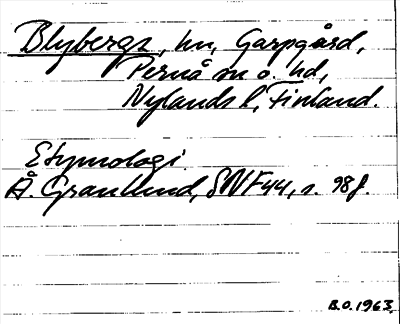 Blybergs, hn, Garpgård,
Pernå sn o. hd,
Nylands l, Finland.
Etymologi
Å. Granlund, SNF 44, s. 98f.
B.O. 1963.